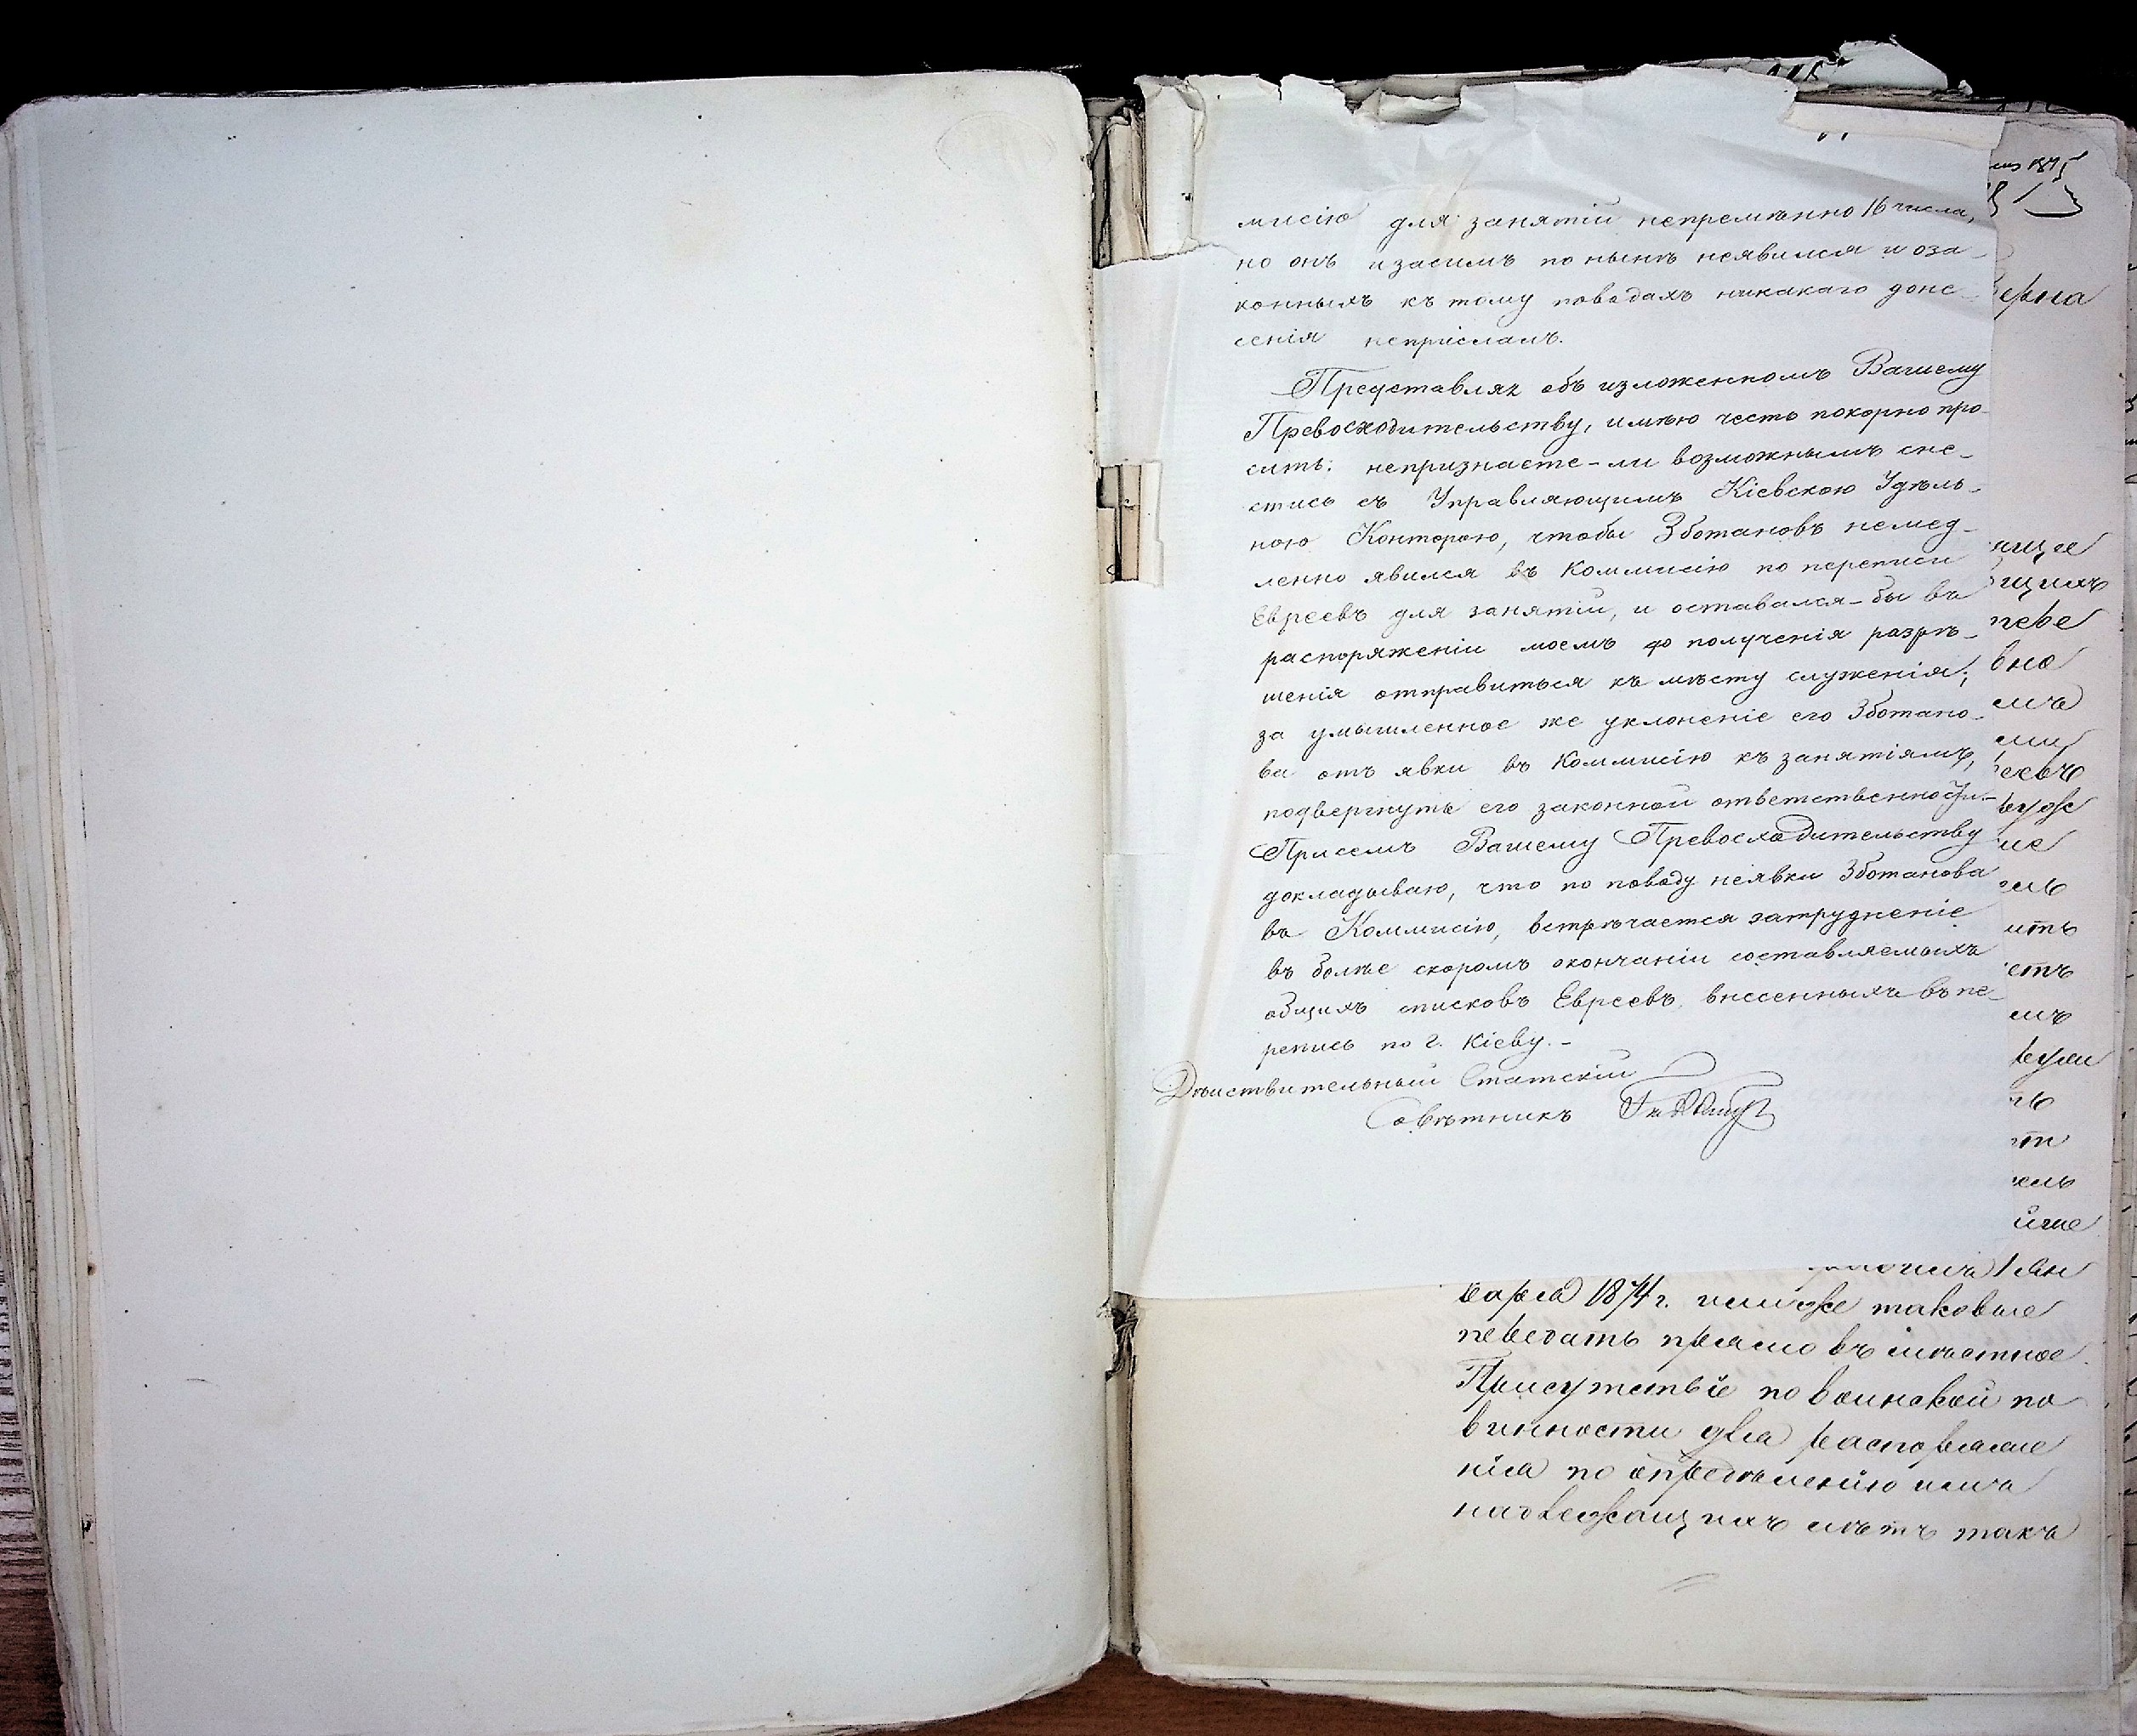 мисію для занятій непремѣнно 16 числа,
но онъ и засимъ по нынѣ неявился и оза-
конныхъ къ тому поводахъ никакаго доне-
сенія неприслалъ.
Представляя объ изложенномъ Вашему
Превосходительству, имѣю честь покорно про-
сить: непризнаете-ли возможнымъ сне-
стись съ Управляющимъ Кіевскою Удѣль-
ною Конторою, чтобы Зботановъ немед-
ленно явился въ Коммисію по переписи
Евреевъ для занятій, и оставался-бы въ
распоряженіи моемъ до полученія разрѣ-
шенія отправиться къ мѣсту служенія;
за умышленное же уклоненіе его Зботано-
ва отъ явки въ Коммисію къ занятіямъ,
подвергнуть его законной ответственности.-
Присемъ Вашему Превосходительству
докладываю, что по поводу неявки Зботанова
въ Коммисію, встрѣчается затрудненіе
въ болѣе скоромъ окончаніи составляемыхъ
общихъ списковъ Евреевъ, внесенныхъ въ пе-
репись по г. Кіеву.-
Дѣйствительный Статскій
Совѣтникъ
ерна
ющее
щихъ
пере
вно
емъ
еевъ
ить
етъ
емъ
ель
1 Ян
варя 1874 г. или же таковые
передать прямо въ мѣстное
Присутствіе по воинской по
винности для распоряже
нія по опредѣленію имъ
надлежащихъ лѣтъ такъ